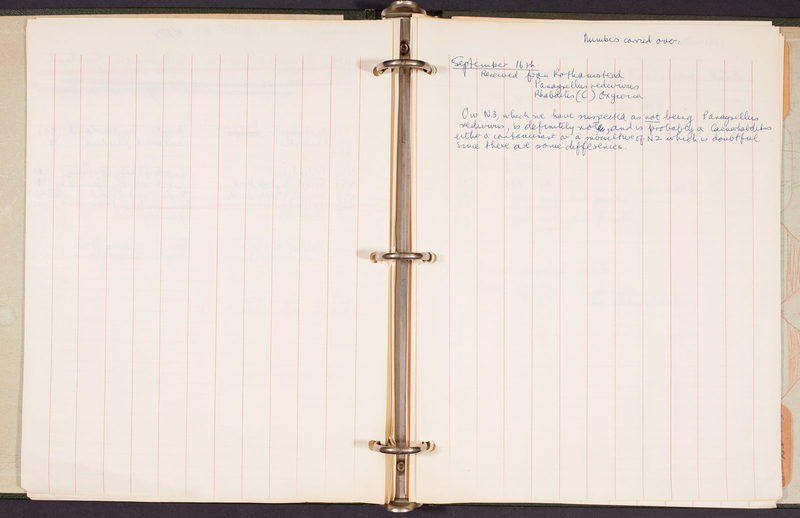 Numbers carried over:
September 16th
Received from Rothamstead
Panagrellus redivivus
Rhabditis (C)
Our N3, which we have suspected as not being Panagrellus
redivivus, is definitely not, and is probably a Caenorhabditis
either a contaminant or a subculture of N2 which is doubtful
since there are some differences.